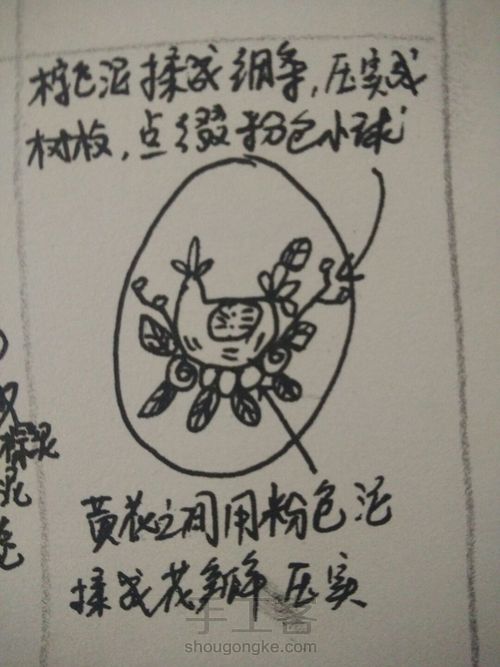 棕色泥揉成细条,压实成
树枝,点缀粉色小球
棕泥
泥
黄花之间用粉色泥
揉成花瓣 压实
手工客
shougongke.com